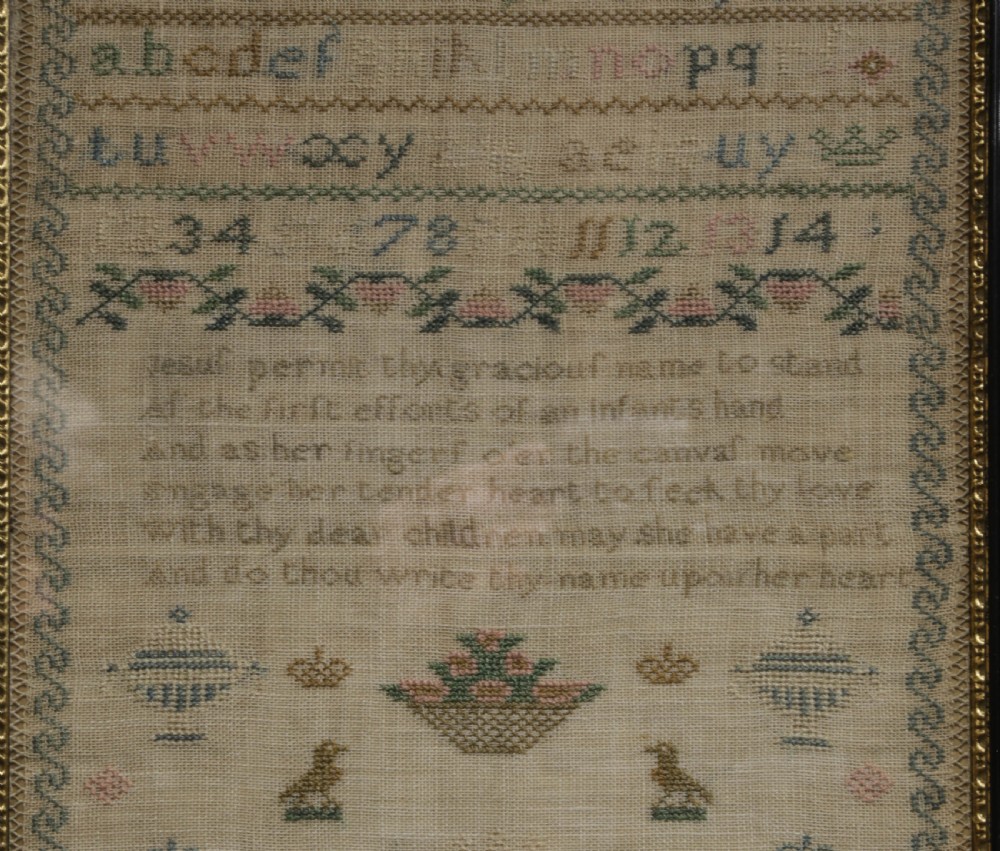 abcdef hiklmnopq
tuvwxy ae uy
34 78 11 12 13 14
Jesuſ permit thy graciouſ name to stand
Aſ the firſt efforts of an infant's hand
And as her fingerſ o'er the canvaſ move
engage her tender heart to ſeek thy love
with thy dear children may she have a part
And do thou write thy name upon her heart